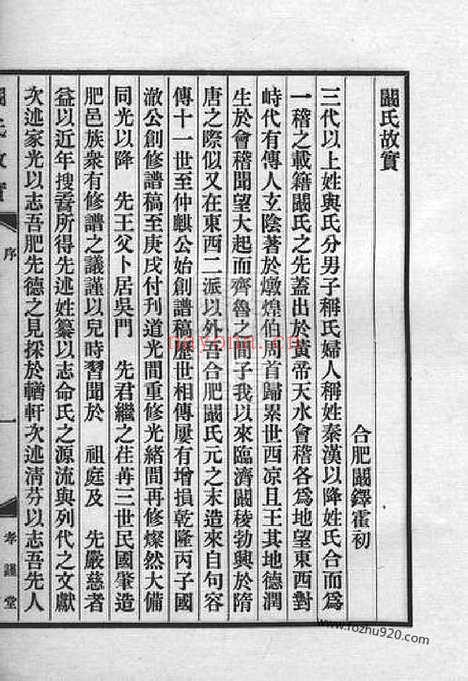 闞氏故實
合肥闞鐸霍初
三代以上姓與氏分男子稱氏婦人稱姓秦漢以降姓氏合而爲
一稽之載籍闞氏之先蓋出於黃帝天水會稽各爲地望東西對
峙代有傳人玄陰著於燉煌伯周首歸累世西凉且王其地德潤
生於會稽聞望大起而齊魯之間子我以來臨濟闞稜勃興於隋
唐之際似又在東西二派以外吾合肥闞氏元之末造來自句容
傳十一世至仲麒公始創譜稿歷世相傳屢有增損乾隆丙子國
澈公創修譜稿至庚戌付刊道光間重修光緒間再修燦然大備
同光以降　先王父卜居吳門　先君繼之荏苒三世民國肇造
肥邑族衆有修譜之議謹以兒時習聞於　祖庭及　先嚴慈者
益以近年搜香所得先述姓纂以志命氏之源流與列代之文獻
次述家光以志吾肥先德之見採於輶軒次述清芬以志吾先人
闞氏故實
序
一
孝謹堂
nayona.cn
www.rozhu920.com